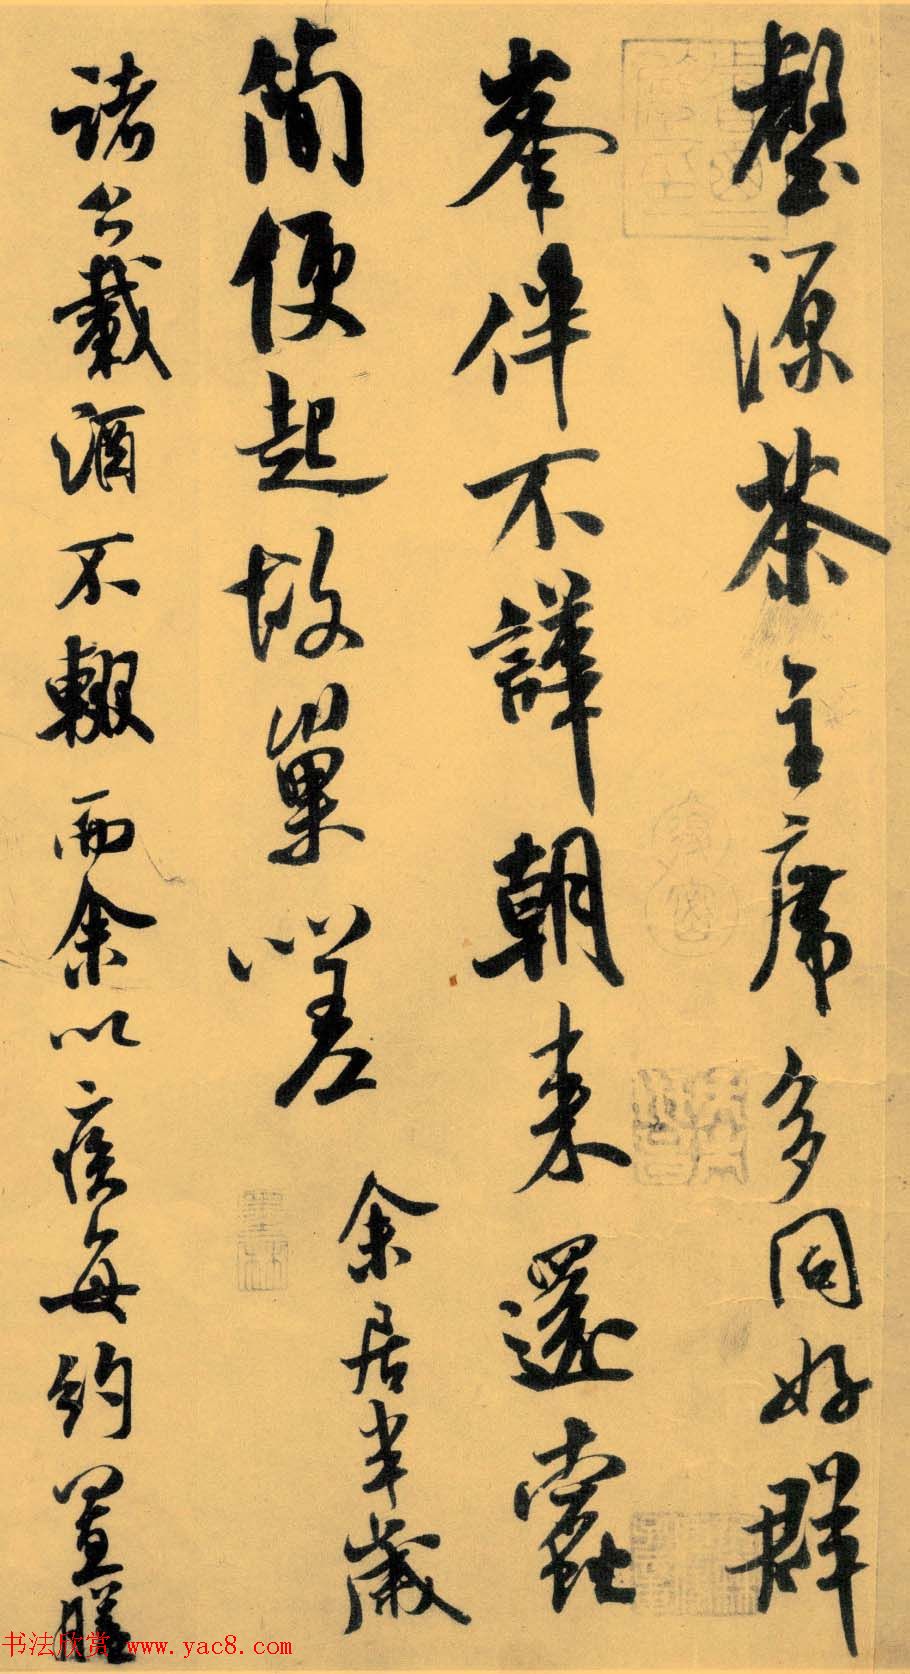 壑源茶主席多同好群
峯伴不譁朝来還蠹
簡便起故巢嗟 余居半歲
諸公載酒不輟而余以疾每約置膳
书法欣赏 www.yac8.com